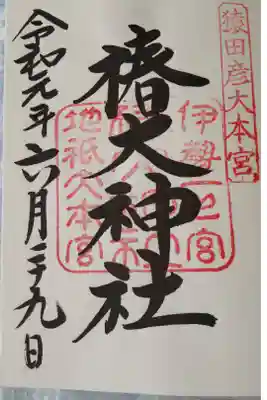 猿田彦大本宮
伊勢一之宮
椿大神社
地祇大本宮
令和元年六月二十九日